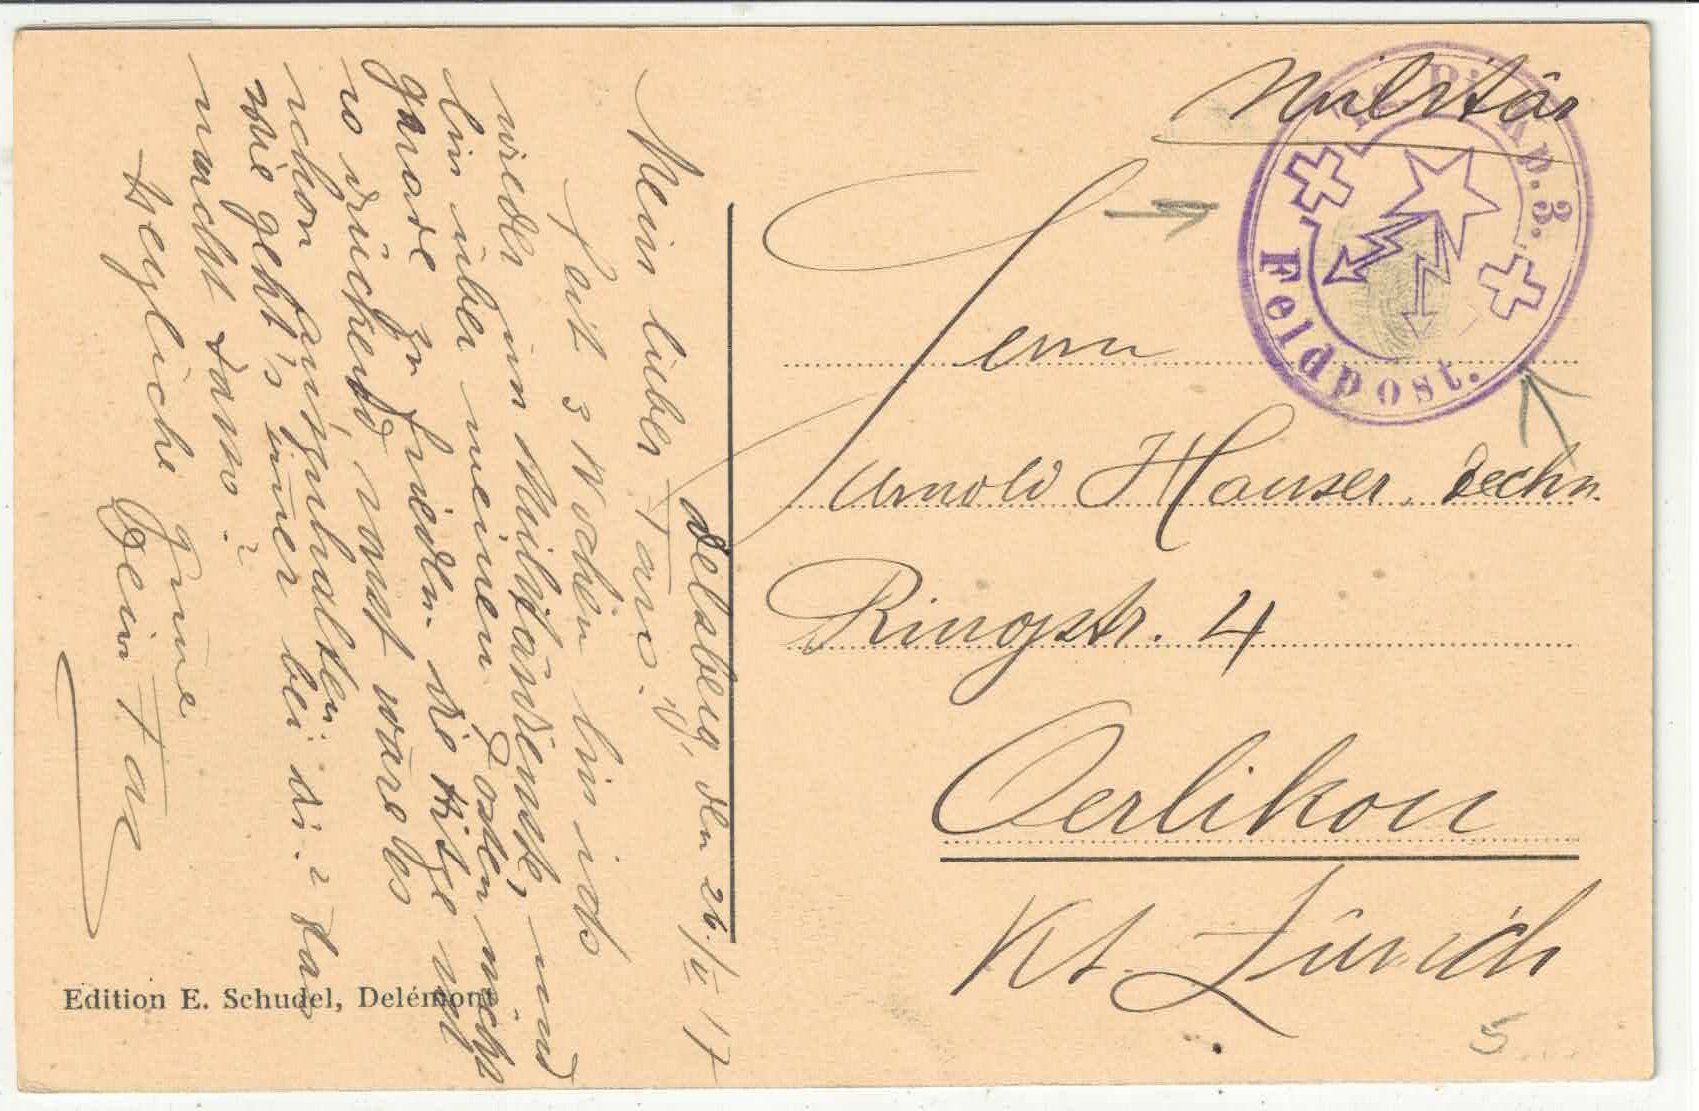 Militär
Pi. Kp. 3.
Feldpost.
Herrn
Arnold Hauser, Techn.
Ringstr. 4
Oerlikon
Kt. Zürich
5
Delsberg, den 26./VI 17
Mein lieber
Seit 3 Wochen bin ich
wieder im Militärdienst, und
bin über meinen Posten nicht
gerade zu frieden. die Hitze ist
so drückend, fast wäre es
schon auszuhalten
wie geht's immer bei dir? Was
macht
Herzliche Grüsse
Dein
Edition E. Schudel, Delémont